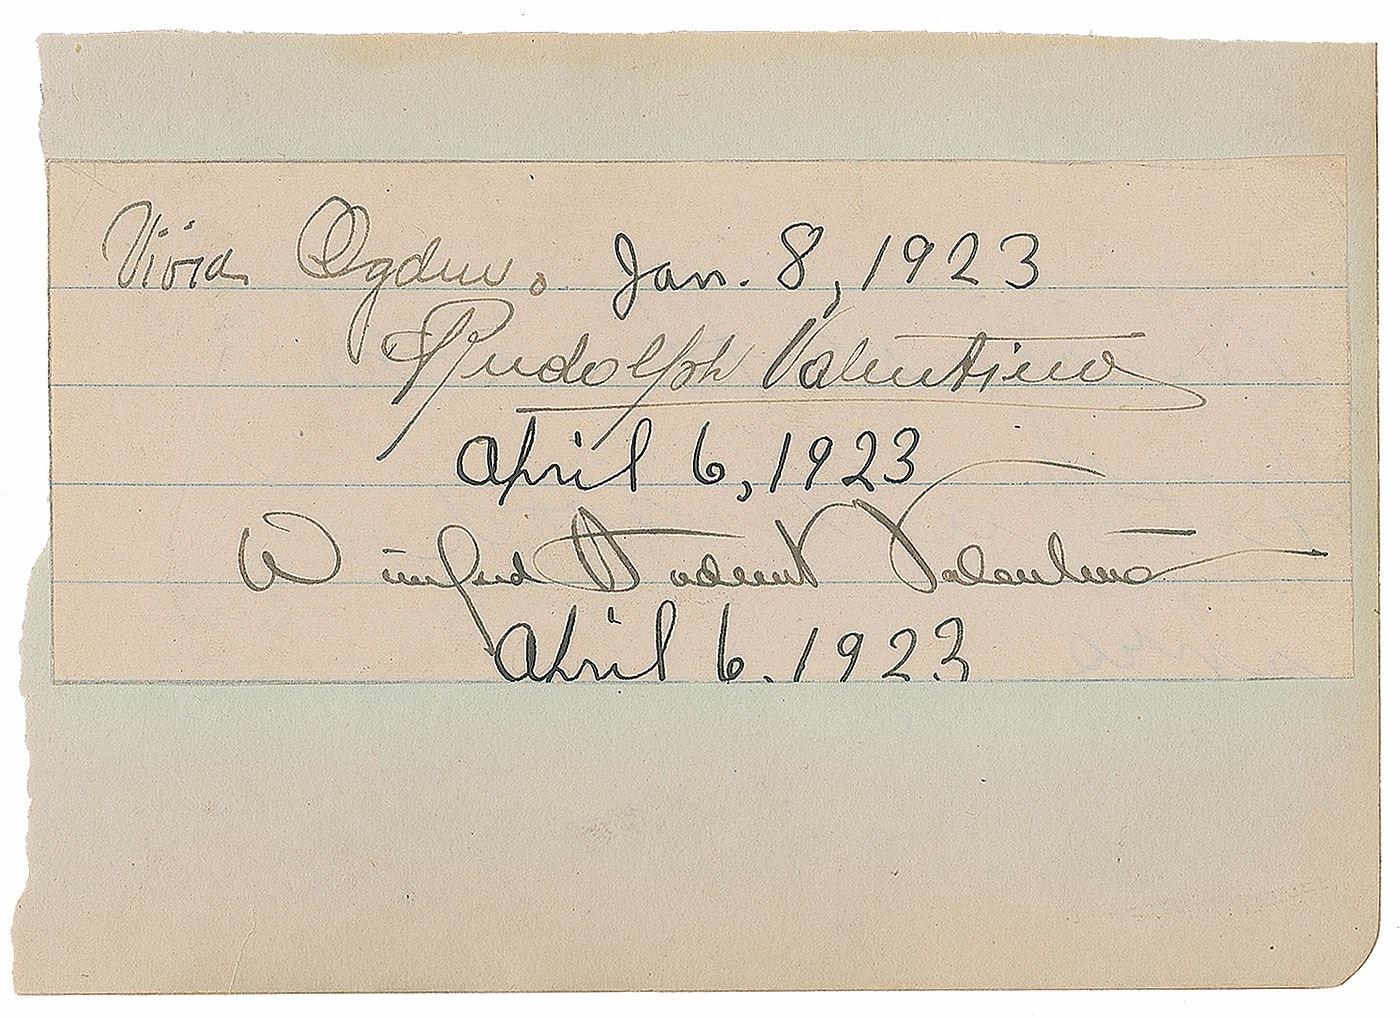 Vivia Ogden. Jan. 8, 1923
Rudolph Valentino
April 6, 1923
Winifred Hudnut Valentino
April 6, 1923